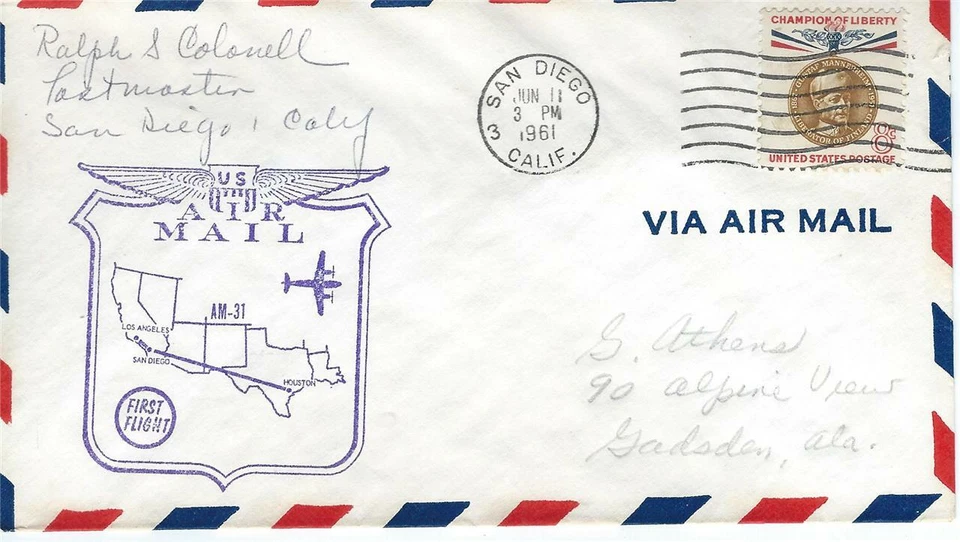 Ralph S Colonell
Postmaster
San Diego, Calif
SAN DIEGO
JUN 11
3 PM
1961
3
CALIF.
CHAMPION OF LIBERTY
GUSTAF MANNERHEIM
LIBERATOR OF FINLAND
8c
UNITED STATES POSTAGE
VIA AIR MAIL
US
AIR
MAIL
AM-31
LOS ANGELES
SAN DIEGO
HOUSTON
FIRST
FLIGHT
G. Athens
90 Alpine View
Gadsden, Ala.